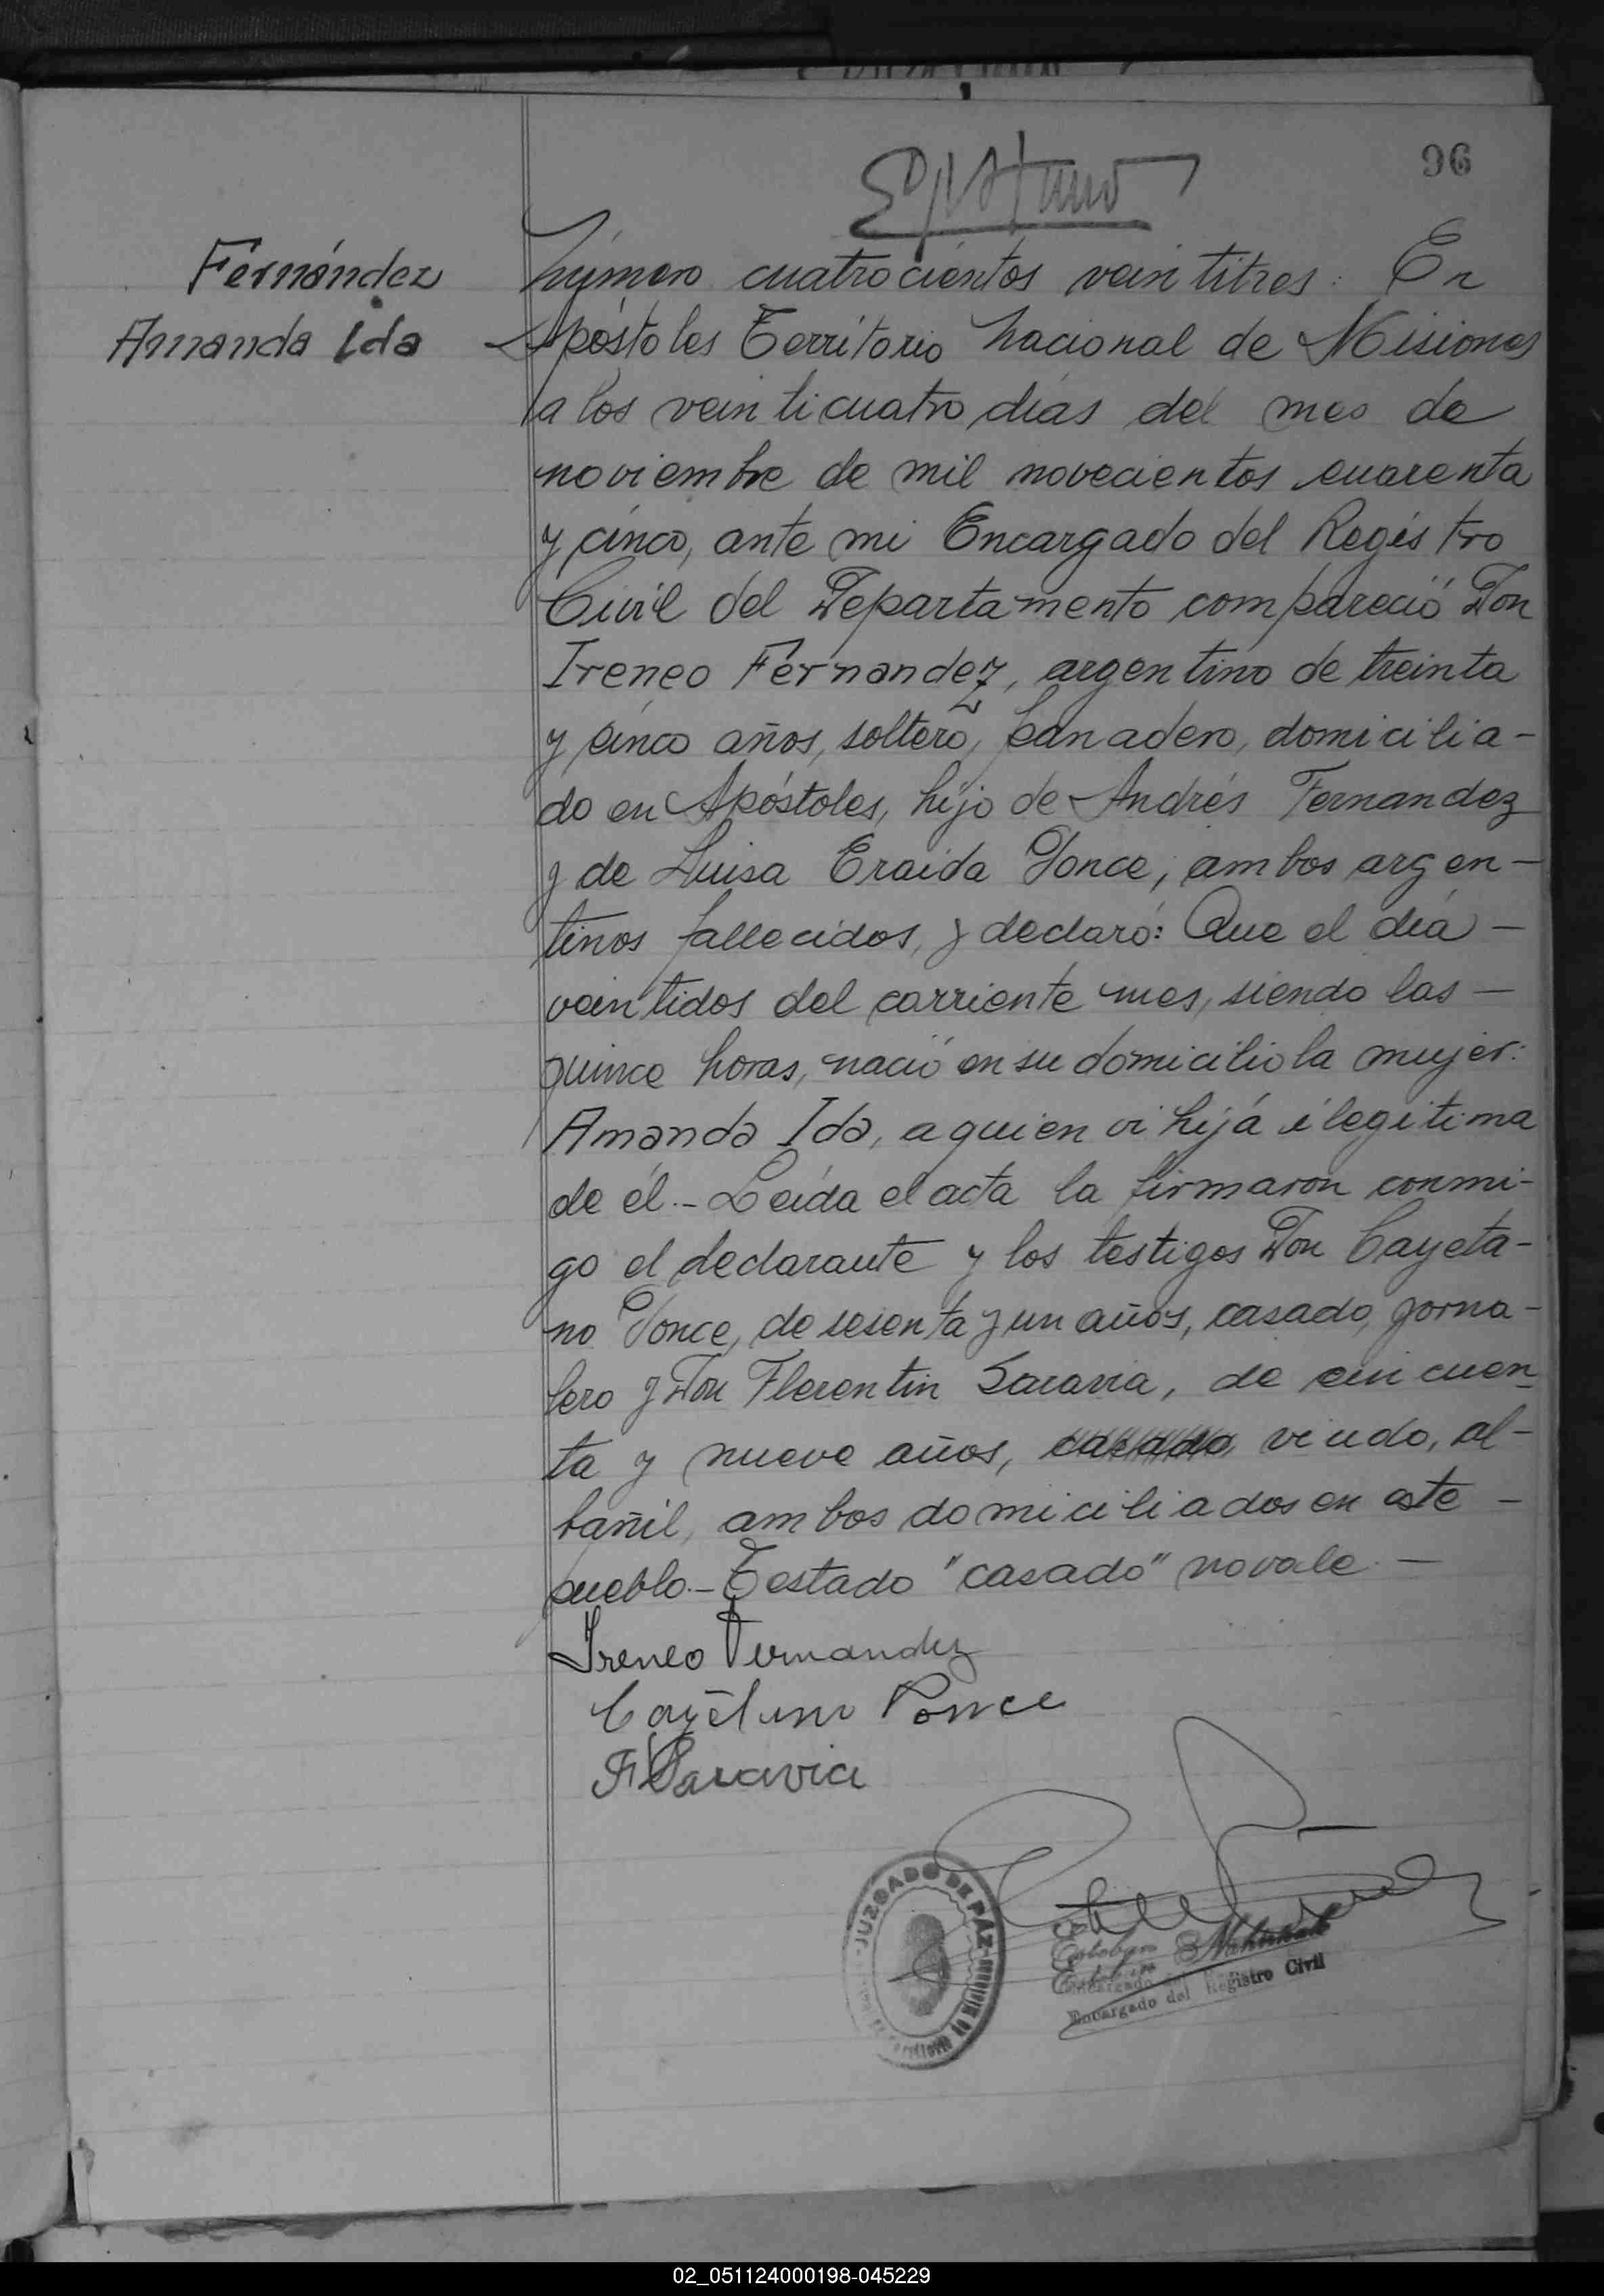 96
Fernández
Amanda Ida
Número cuatrocientos veintitres: En
Apóstoles Territorio Nacional de Misiones
a los veinticuatro días del mes de
noviembre de mil novecientos cuarenta
y cinco, ante mi Encargado del Registro
Civil del Departamento compareció Don
Ireneo Fernandez, argentino de treinta
y cinco años, soltero, panadero, domicilia-
do en Apóstoles, hijo de Andrés Fernandez
y de Luisa Eraida Ponce, ambos argen-
tinos fallecidos, y declaró: Que el día -
veintidos del corriente mes, siendo las -
quince horas, nació en su domicilio la mujer:
Amanda Ida, a quien vi hija ilegitima
de él.- Leída el acta la firmaron conmi-
go el declarante y los testigos Don Cayeta-
no Ponce, de sesenta y un años, casado, jorna-
lero y Don Florentin Saravia, de cincuen-
ta y nueve años, casado viudo, al-
bañil, ambos domiciliados en este -
pueblo.- Testado "casado" no vale. -
Ireneo Fernandez
Cayetano Ponce
F Saravia
JUZGADO DE PAZ
Esteban
Encargado del Registro Civil
02_051124000198-045229